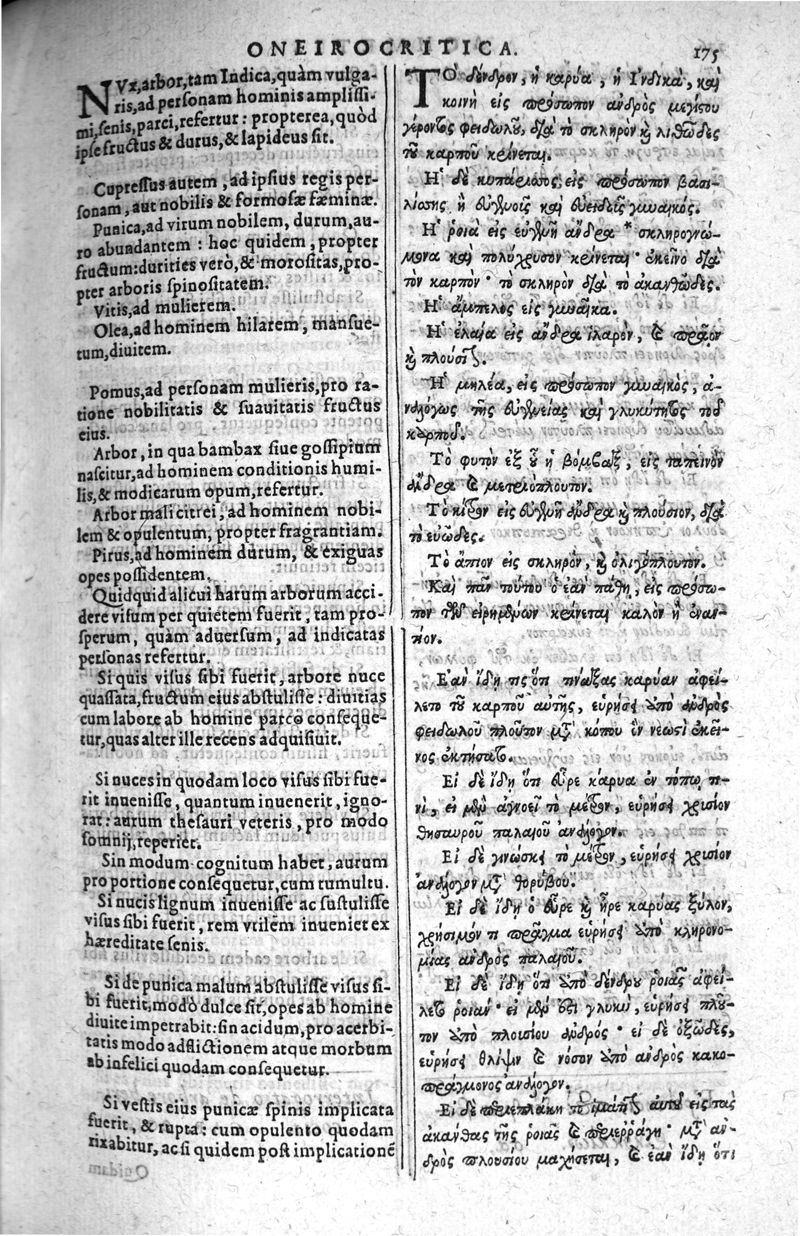 ONEIROCRITICA. 175
NVx, arbor, tam Indica, quàm vulga-
ris, ad personam hominis amplissi-
mi, senis, parci, refertur: propterea, quòd
ipse fructus & durus, & lapideus sit.
Cupressus autem, ad ipsius regis per-
sonam, aut nobilis & formosæ fæminæ.
Punica, ad virum nobilem, durum, au-
ro abundantem: hoc quidem, propter
fructum: durities verò, & morositas, pro-
pter arboris spinositatem.
Vitis, ad mulierem.
Olea, ad hominem hilarem, mansue-
tum, diuitem.
Pomus, ad personam mulieris, pro ra-
tione nobilitatis & suauitatis fructus
eius.
Arbor, in qua bambax siue gossipium
nascitur, ad hominem conditionis humi-
lis, & modicarum opum, refertur.
Arbor mali citrei, ad hominem nobi-
lem & opulentum, propter fragrantiam.
Pirus, ad hominem durum, & exiguas
opes possidentem.
Quidquid alicui harum arborum acci-
dere visum per quietem fuerit, tam pro-
sperum, quàm aduersum, ad indicatas
personas refertur.
Si quis visus sibi fuerit, arbore nuce
quassata, fructum eius abstulisse: diuitias
cum labore ab homine parco conseque-
tur, quas alter ille recens adquisiuit.
Si nuces in quodam loco visus sibi fue-
rit inuenisse, quantum inuenerit, igno-
rat: aurum thesauri veteris, pro modo
somnij, reperiet.
Sin modum cognitum habet, aurum
pro portione consequetur, cum tumultu.
Si nucis lignum inuenisse ac sustulisse
visus sibi fuerit, rem vtilem inueniet ex
hæreditate senis.
Si de punica malum abstulisse visus si-
bi fuerit, modò dulce sit, opes ab homine
diuite impetrabit: sin acidum, pro acerbi-
tatis modo adflictionem atque morbum
ab infelici quodam consequetur.
Si vestis eius punicæ spinis implicata
fuerit, & rupta: cum opulento quodam
rixabitur, ac si quidem post implicationē
Τὸ δένδρον, ἡ καρύα, ἡ Ἰνδικὰ, καὶ
κοινὴ εἰς πρόσωπον ἀνδρὸς μεγίστου
γέροντος φειδωλοῦ, διὰ τὸ σκληρὸν καὶ λιθῶδες
τοῦ καρποῦ κρίνεται.
Ἡ δὲ κυπάρισσος, εἰς πρόσωπον βασι-
λίσσης ἢ εὐγενοῦς καὶ εὐειδοῦς γυναικός.
Ἡ ροιὰ εἰς εὐγενῆ ἄνδρα * σκληρογνώ-
μονα καὶ πολύχρυσον κρίνεται· ἐκεῖνο διὰ
τὸν καρπὸν· τὸ σκληρὸν διὰ τὸ ἀκανθῶδες.
Ἡ ἄμπελος εἰς γυναῖκα.
Ἡ ἐλαία εἰς ἄνδρα ἱλαρὸν, καὶ πρᾶον
καὶ πλούσιον.
Ἡ μηλέα, εἰς πρόσωπον γυναικὸς, ἀ-
ναλόγως τῆς εὐγενείας καὶ γλυκύτητος τοῦ
καρποῦ.
Τὸ φυτὸν ἐξ οὗ ἡ βόμβαξ, εἰς ταπεινὸν
ἄνδρα καὶ μετριόπλουτον.
Τὸ κίτρον εἰς εὐγενῆ ἄνδρα καὶ πλούσιον, διὰ
τὸ εὐῶδες.
Τὸ ἄπιον εἰς σκληρὸν, καὶ ὀλιγόπλουτον.
Καὶ πᾶν τούτου ὃ ἐὰν πάθῃ, εἰς πρόσω-
πον τῶν εἰρημένων κρίνεται καλὸν ἢ ἐναν-
τίον.
Ἐὰν ἴδῃ τις ὅτι τινάξας καρύαν ἀφεί-
λετο τοῦ καρποῦ αὐτῆς, εὑρήσει ὑπὸ ἀνδρὸς
φειδωλοῦ πλοῦτον μετὰ κόπου ὃν νεωστὶ ἐκεῖ-
νος ἐκτήσατο.
Εἰ δὲ ἴδῃ ὅτι εὗρε κάρυα ἐν τόπῳ τι-
νὶ, εἰ μὲν ἀγνοεῖ τὸ μέτρον, εὑρήσει χρυσίον
θησαυροῦ παλαιοῦ ἀνάλογον.
Εἰ δὲ γινώσκει τὸ μέτρον, εὑρήσει χρυσίον
ἀνάλογον μετὰ θορύβου.
Εἰ δὲ ἴδῃ ὃ εὗρε καὶ ᾖρε καρύας ξύλον,
χρήσιμόν τι πρᾶγμα εὑρήσει ὑπὸ κληρονο-
μίας ἀνδρὸς παλαιοῦ.
Εἰ δὲ ἴδῃ ὅτι ὑπὸ δένδρου ροιᾶς ἀφεί-
λετο ροιαν· εἰ μὲν ἐστι γλυκὺ, εὑρήσει πλοῦ-
τον ὑπὸ πλουσίου ἀνδρὸς· εἰ δὲ ὀξῶδες,
εὑρήσει θλίψιν καὶ νόσον ὑπὸ ἀνδρὸς κακο-
πράγμονος ἀνάλογον.
Εἰ δὲ περιεπλάκη τὸ ἱμάτιον αὐτοῦ εἰς τὰς
ἀκάνθας τῆς ροιᾶς καὶ περιερράγη· μετὰ ἀν-
δρὸς πλουσίου μαχήσεται, καὶ ἐὰν ἴδῃ ὅτι